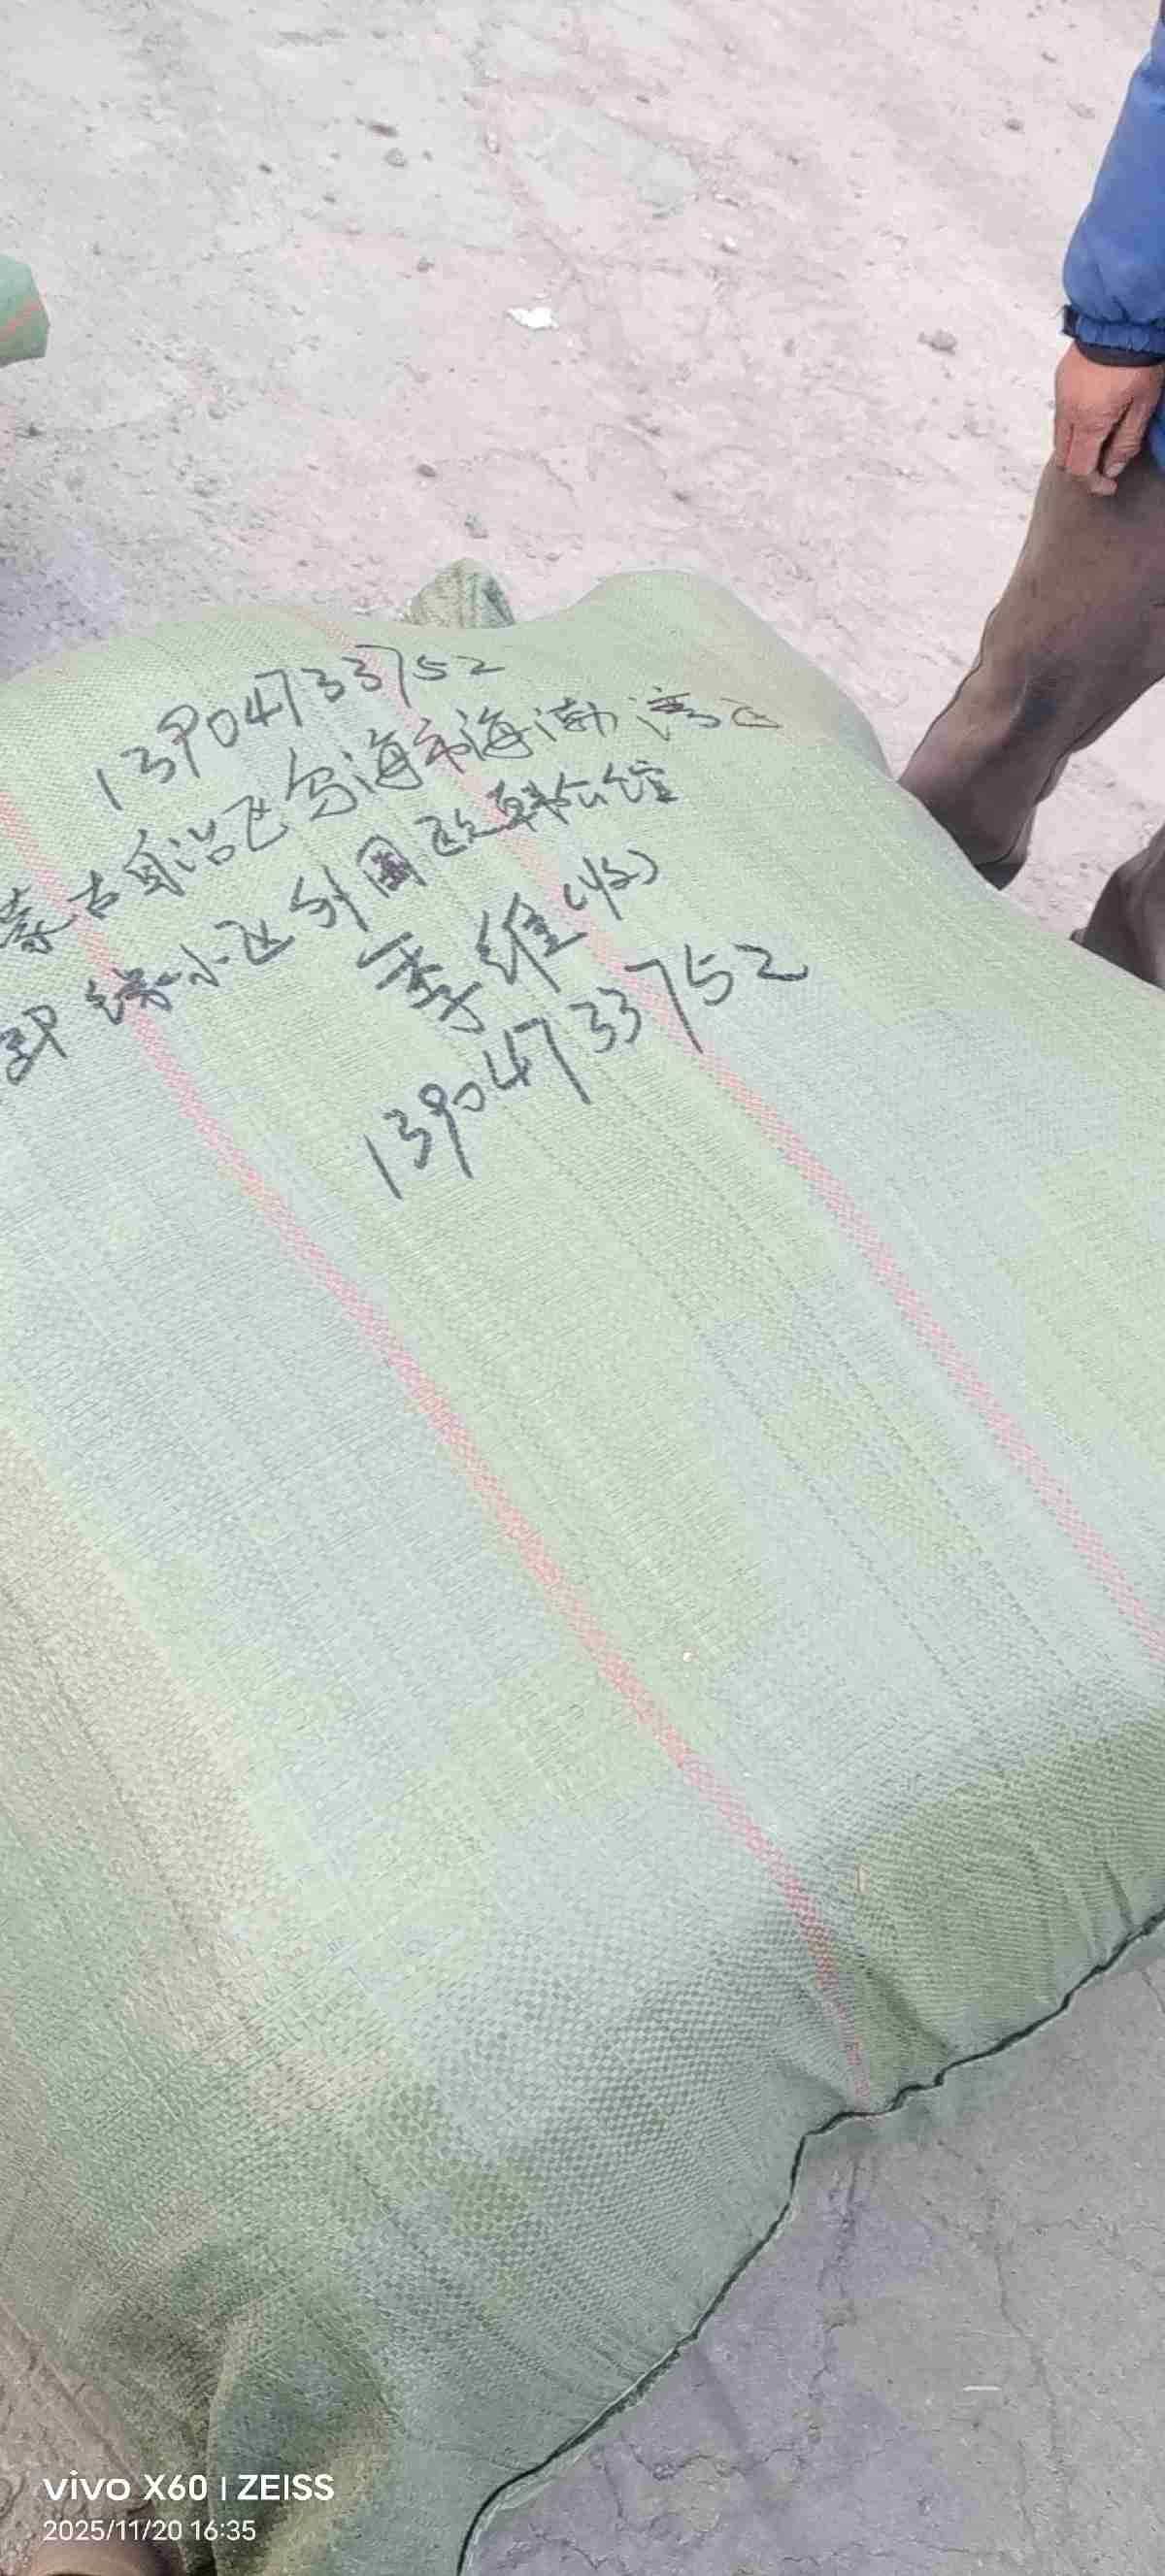 13904733752
蒙古自治区乌海市海渤湾区
邨绿小区外围欧韩会馆
季维(收)
13904733752
vivo X60 | ZEISS
2025/11/20 16:35